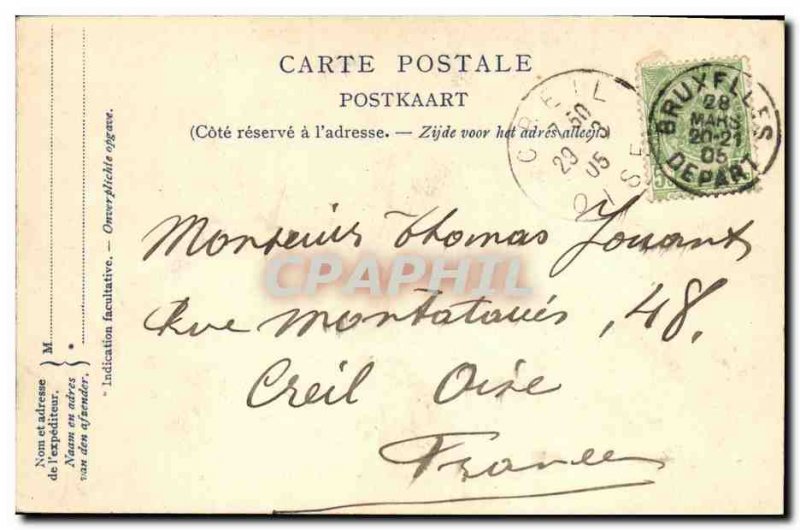 CARTE POSTALE
POSTKAART
(Côté réservé à l'adresse. — Zijde voor het adres alleen)
CREIL
7 50
29 3
05
OISE
BRUXELLES
28
MARS
20-21
05
DEPART
Monsieur Thomas
CPAPHIL
Rue Montataire, 48,
Creil Oise
France
Nom et adresse
de l'expéditeur.
Naam en adres
van den afzender.
M
*
* Indication facultative. — Onverplichte opgave.